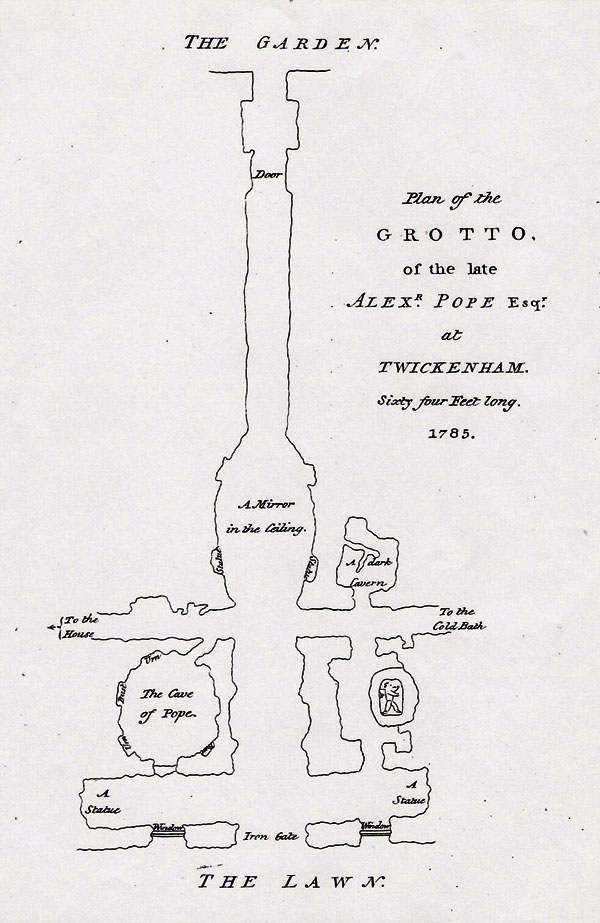 THE GARDEN.
Door
Plan of the
GROTTO,
of the late
ALEXR. POPE Esqr.
at
TWICKENHAM.
Sixty four Feet long.
1785.
A Mirror
in the Ceiling.
Statue
Statue
A dark
Cavern
To the
House
To the
Cold Bath
Urn
Bust
Urn
The Cave
of Pope.
A
Statue
A
Statue
Window
Iron Gate
Window
THE LAWN.